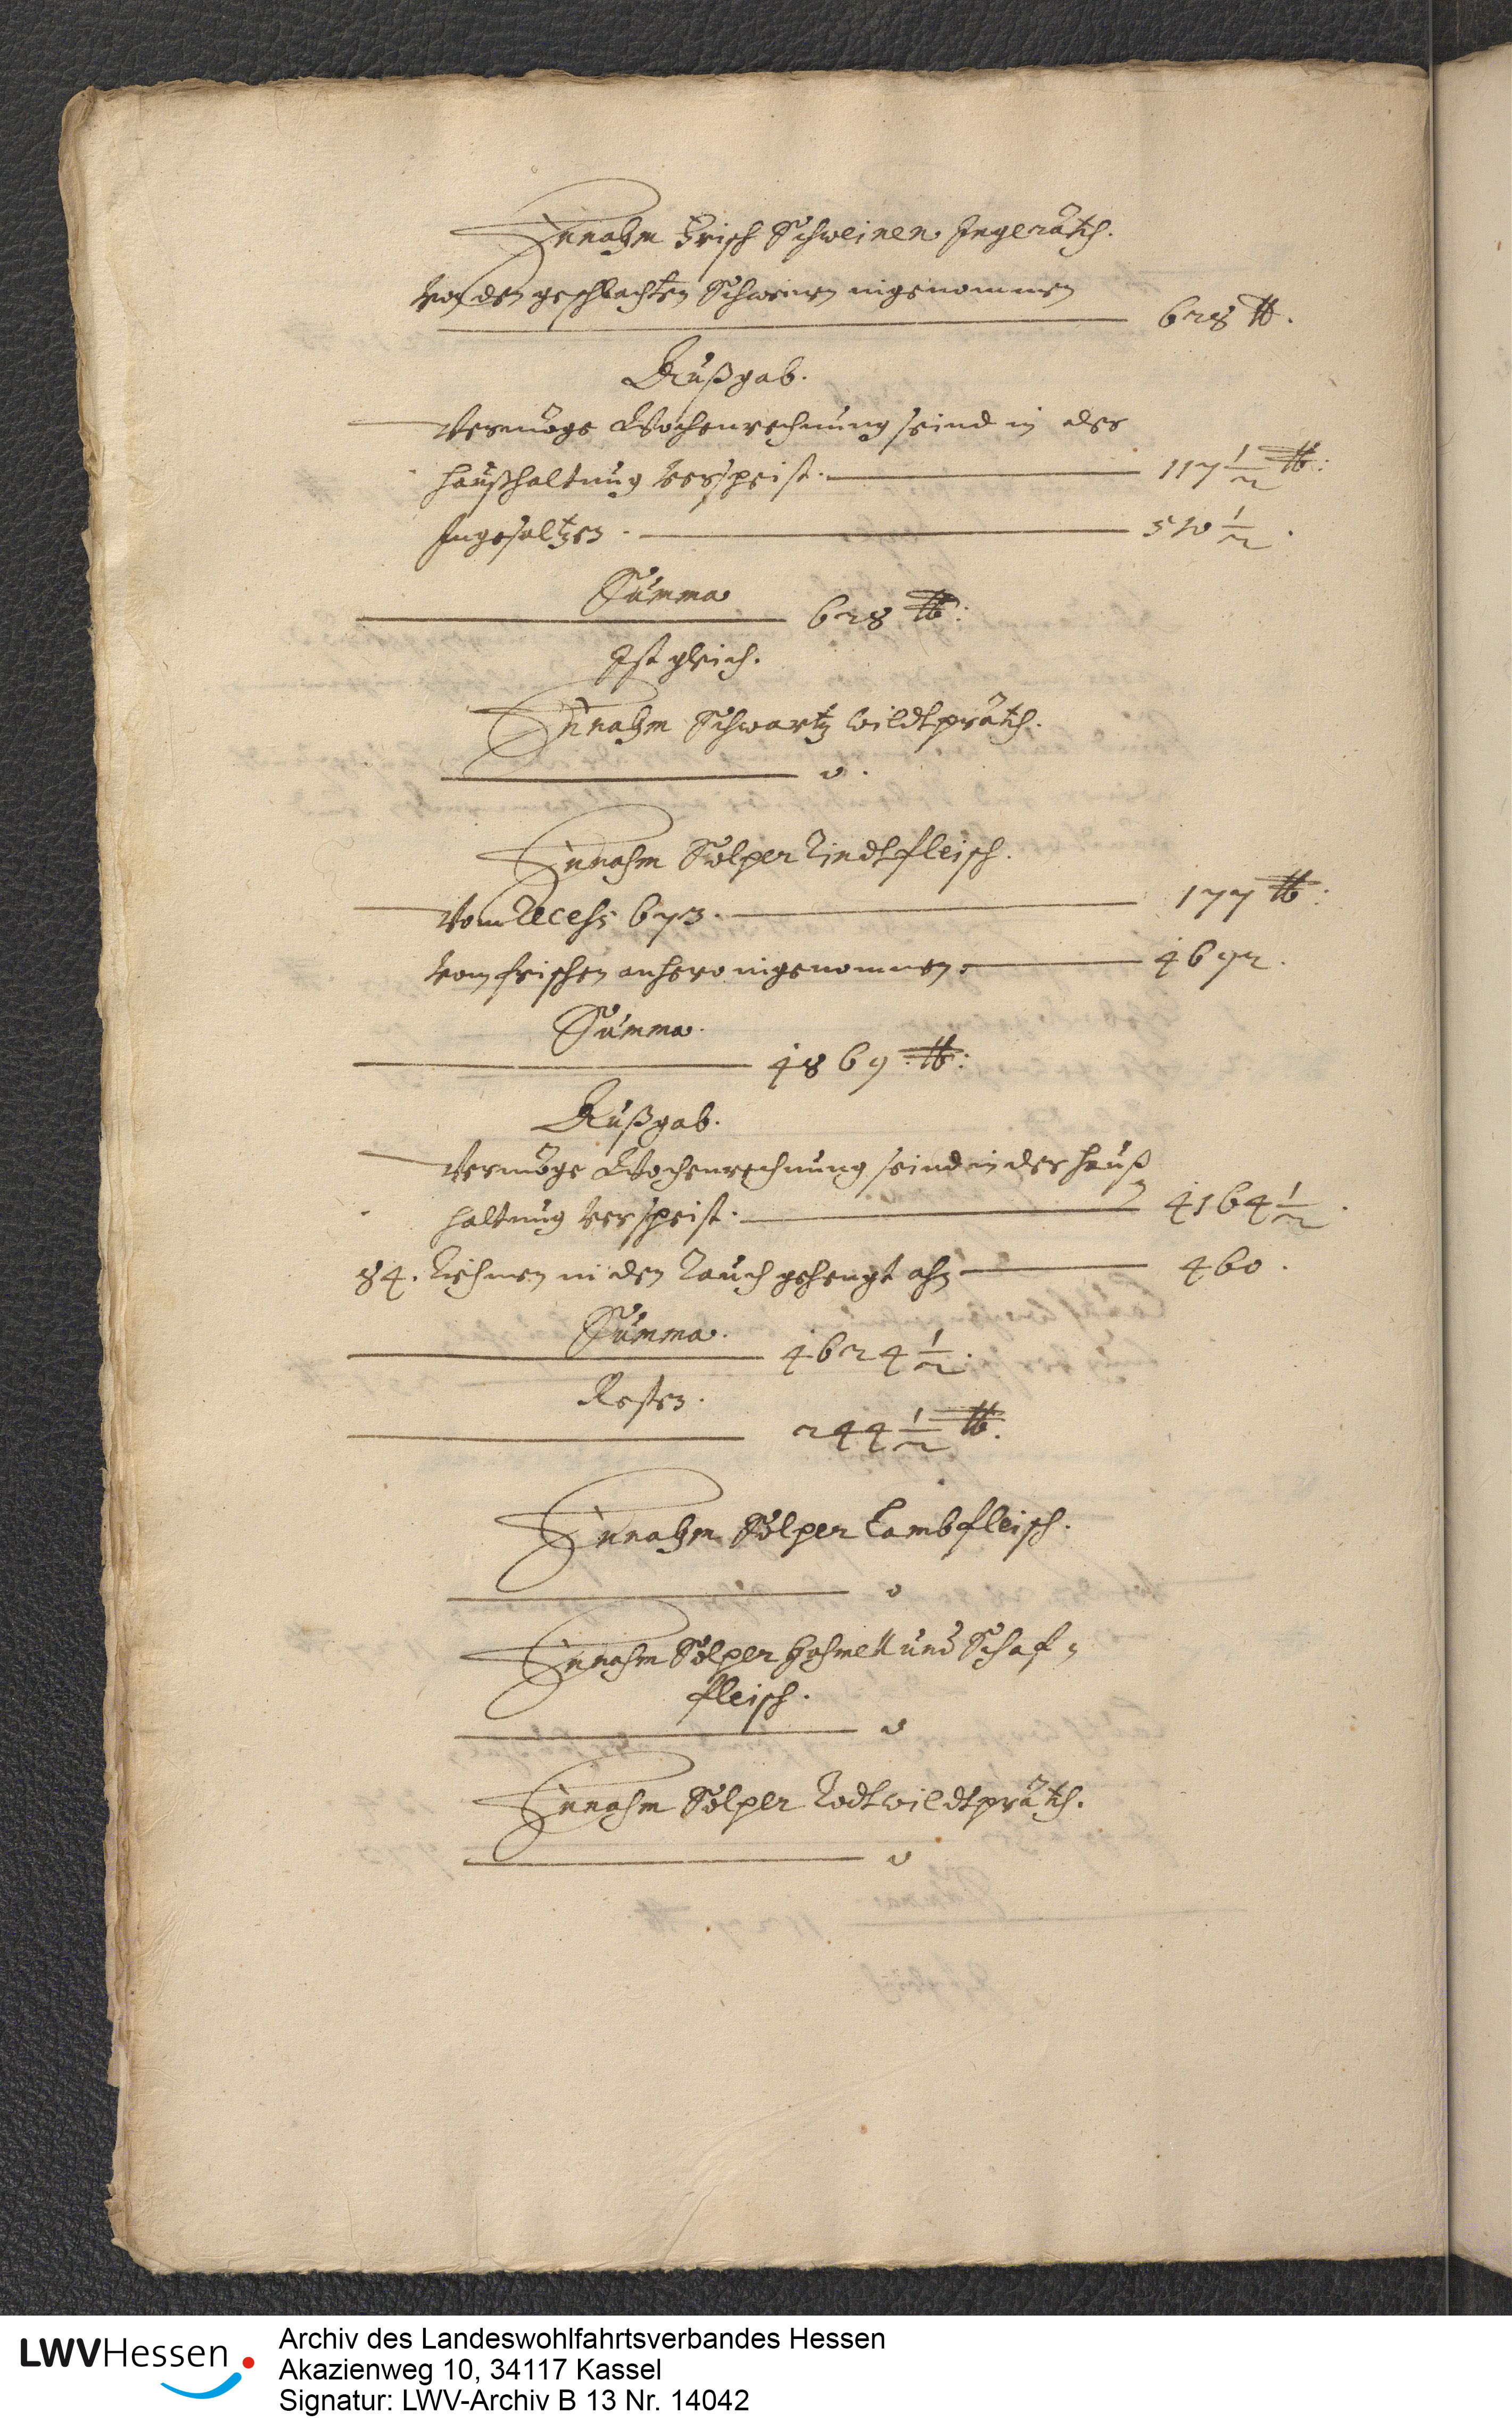 Innahm Frisch Schweinen Ingeräth.
Von den geschlachten Schweinen ingenommen
628 ℔.
Außgab.
Vermöge Wochenrechnung seind in der
haußhaltung verspeist. 117 1/2 ℔:
Ingesaltzen. 510 1/2.
Summa
628 ℔:
Ist gleich.
Innahm Schwartz Wildtpräth.
0.
Innahm Solper Rindtfleisch.
Vom Recess 673. 177 ℔:
Vom frischen anhero ingenommen. 4692.
Summa.
4869 ℔:
Außgab.
Vermöge Wochenrechnung seind in der hauß
haltung verspeist. 4164 1/2.
84. Riehmen in den Rauch gehengt ahn 460.
Summa.
4624 1/2.
Resten.
244 1/2 ℔.
Innahm Solper Lambfleisch.
0
Innahm Solper Hahmell und Schaf-
fleisch.
0
Innahm Solper Rodtwildtpräth.
0
LWVHessen
Archiv des Landeswohlfahrtsverbandes Hessen
Akazienweg 10, 34117 Kassel
Signatur: LWV-Archiv B 13 Nr. 14042